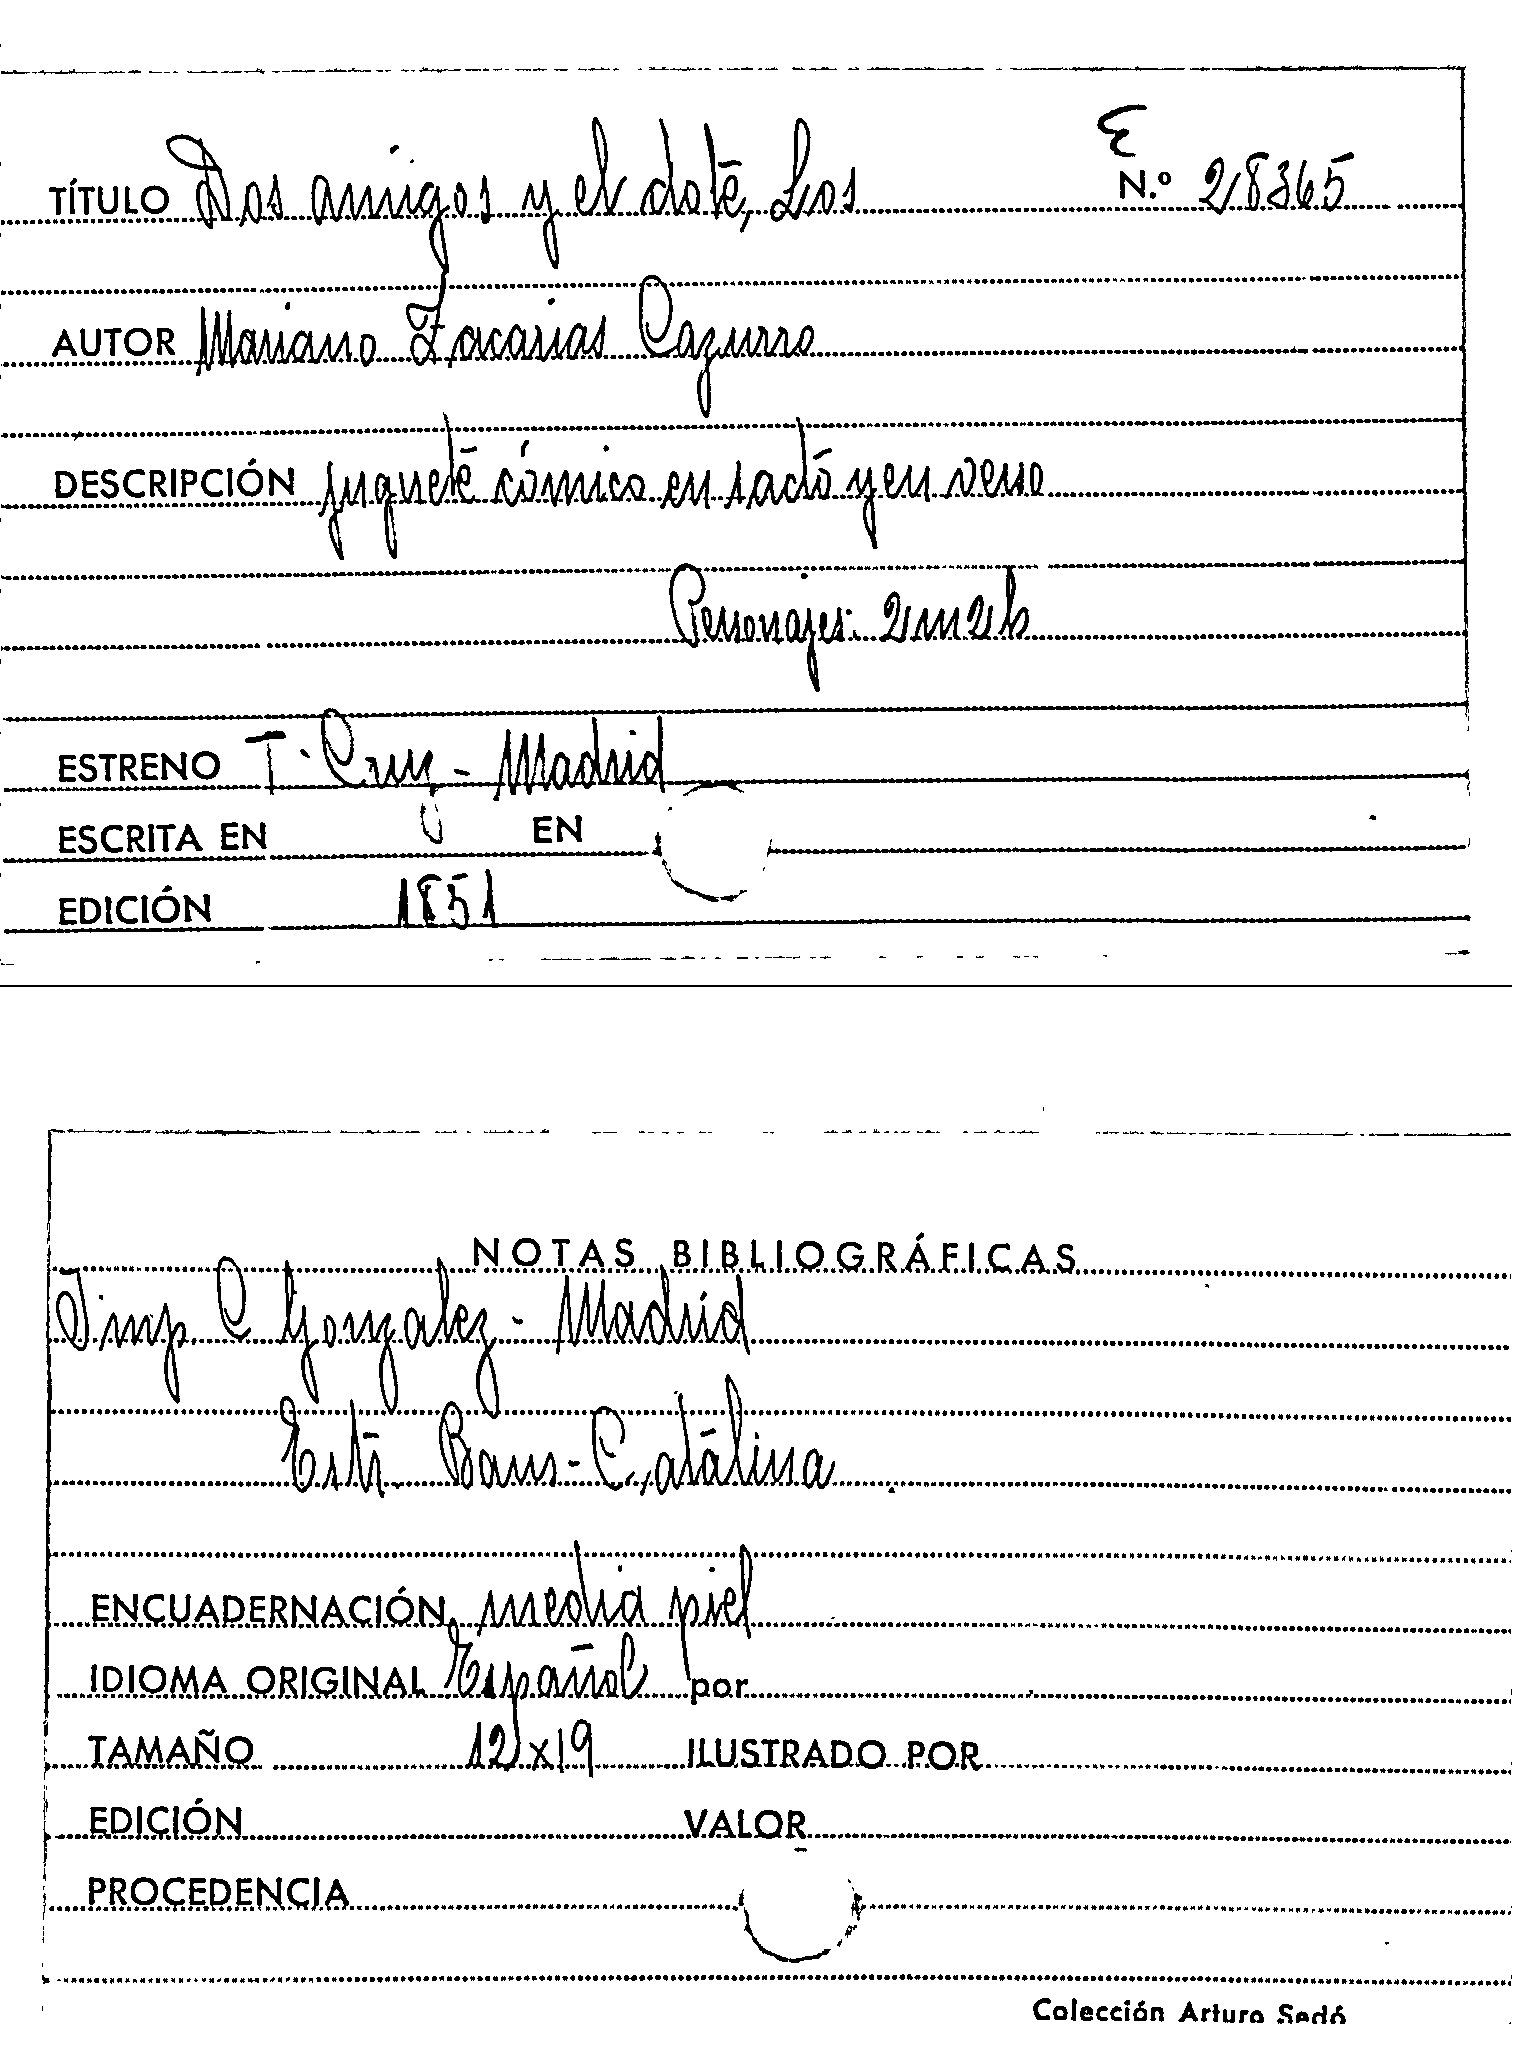 E
TÍTULO Dos amigos y el dote, Los N.º 28365
AUTOR Mariano Zacarias Cazurro
DESCRIPCIÓN juguete cómico en 1 acto y en verso
Personajes: 2m 2h
ESTRENO T. Cruz - Madrid
ESCRITA EN EN
EDICIÓN 1851
NOTAS BIBLIOGRÁFICAS
Imp. C. Gonzalez - Madrid
Estr. Baus - Catalina
ENCUADERNACIÓN media piel
IDIOMA ORIGINAL Español por
TAMAÑO 12x19 ILUSTRADO POR
EDICIÓN VALOR
PROCEDENCIA
Colección Arturo Sedó